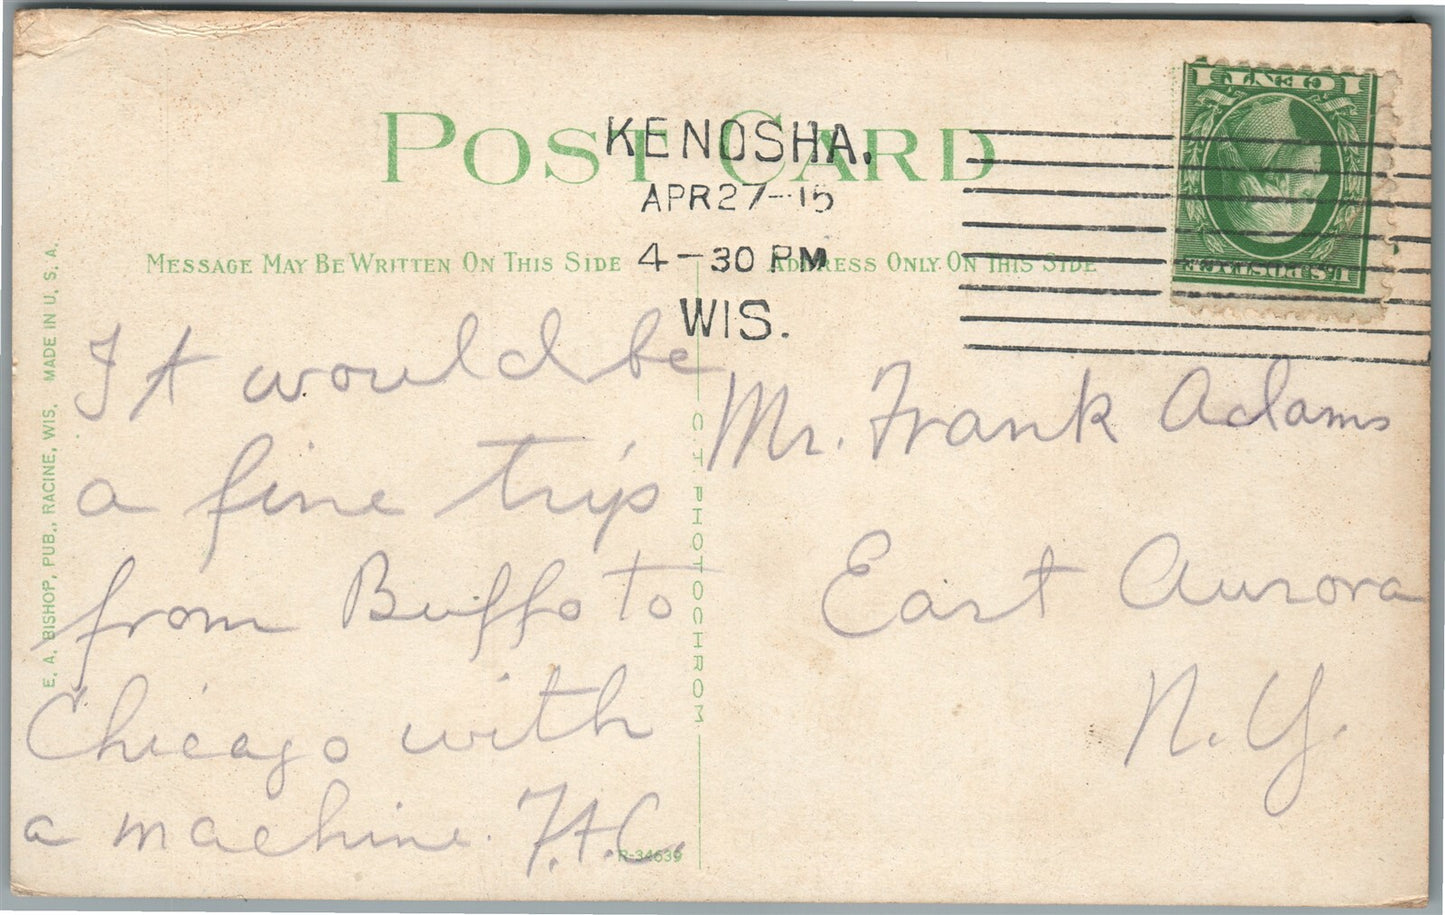 POST CARD
KENOSHA.
APR 27-15
4-30 PM
WIS.
1 CENT 1
U.S. POSTAGE
MESSAGE MAY BE WRITTEN ON THIS SIDE
ADDRESS ONLY ON THIS SIDE
It would be
a fine trip
from Buffo to
Chicago with
a machine. F.A.C.
Mr. Frank Adams
East Aurora
N.Y.
E. A. BISHOP, PUB., RACINE, WIS. MADE IN U. S. A.
C.T. PHOTOCHROM
R-34639